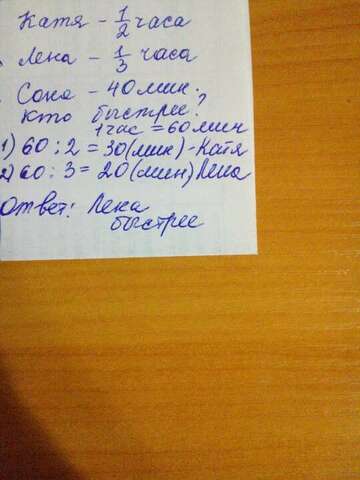 Катя - 1/2 часа
Лена - 1/3 часа
Соня - 40 мин.
Кто быстрее?
1 час = 60 мин
1) 60 : 2 = 30 (мин) - Катя
2) 60 : 3 = 20 (мин) Лена
Ответ: Лена
быстрее